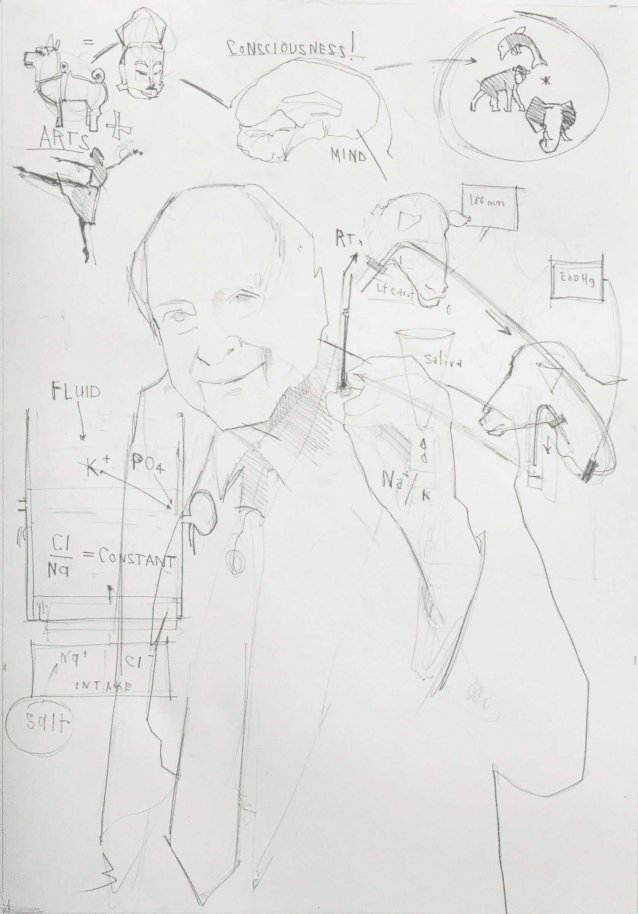 =
CONSCIOUSNESS!
ARTS
MIND
180 mm
RT.
Lt carot
saliva
FLUID
K+ PO4
Na+/K
Cl/Na = CONSTANT
Na+ Cl-
INTAKE
salt